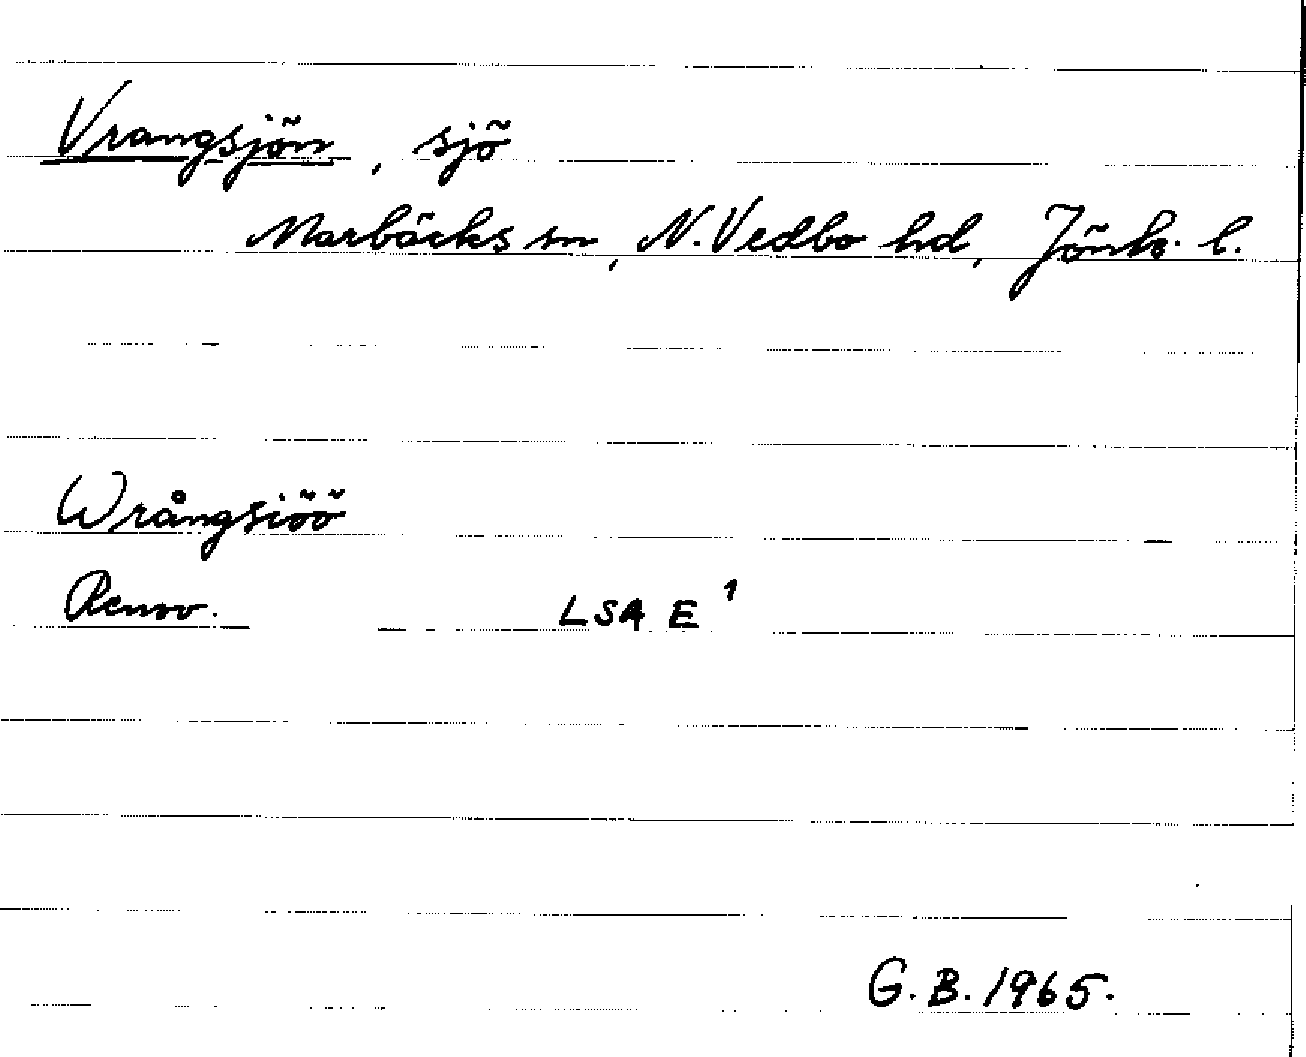 Vrangsjön, sjö
Marbäcks sn, N. Vedbo hd, Jönk. l.
Wrångsiöö
Renov. LSA E 1
G.B. 1965.